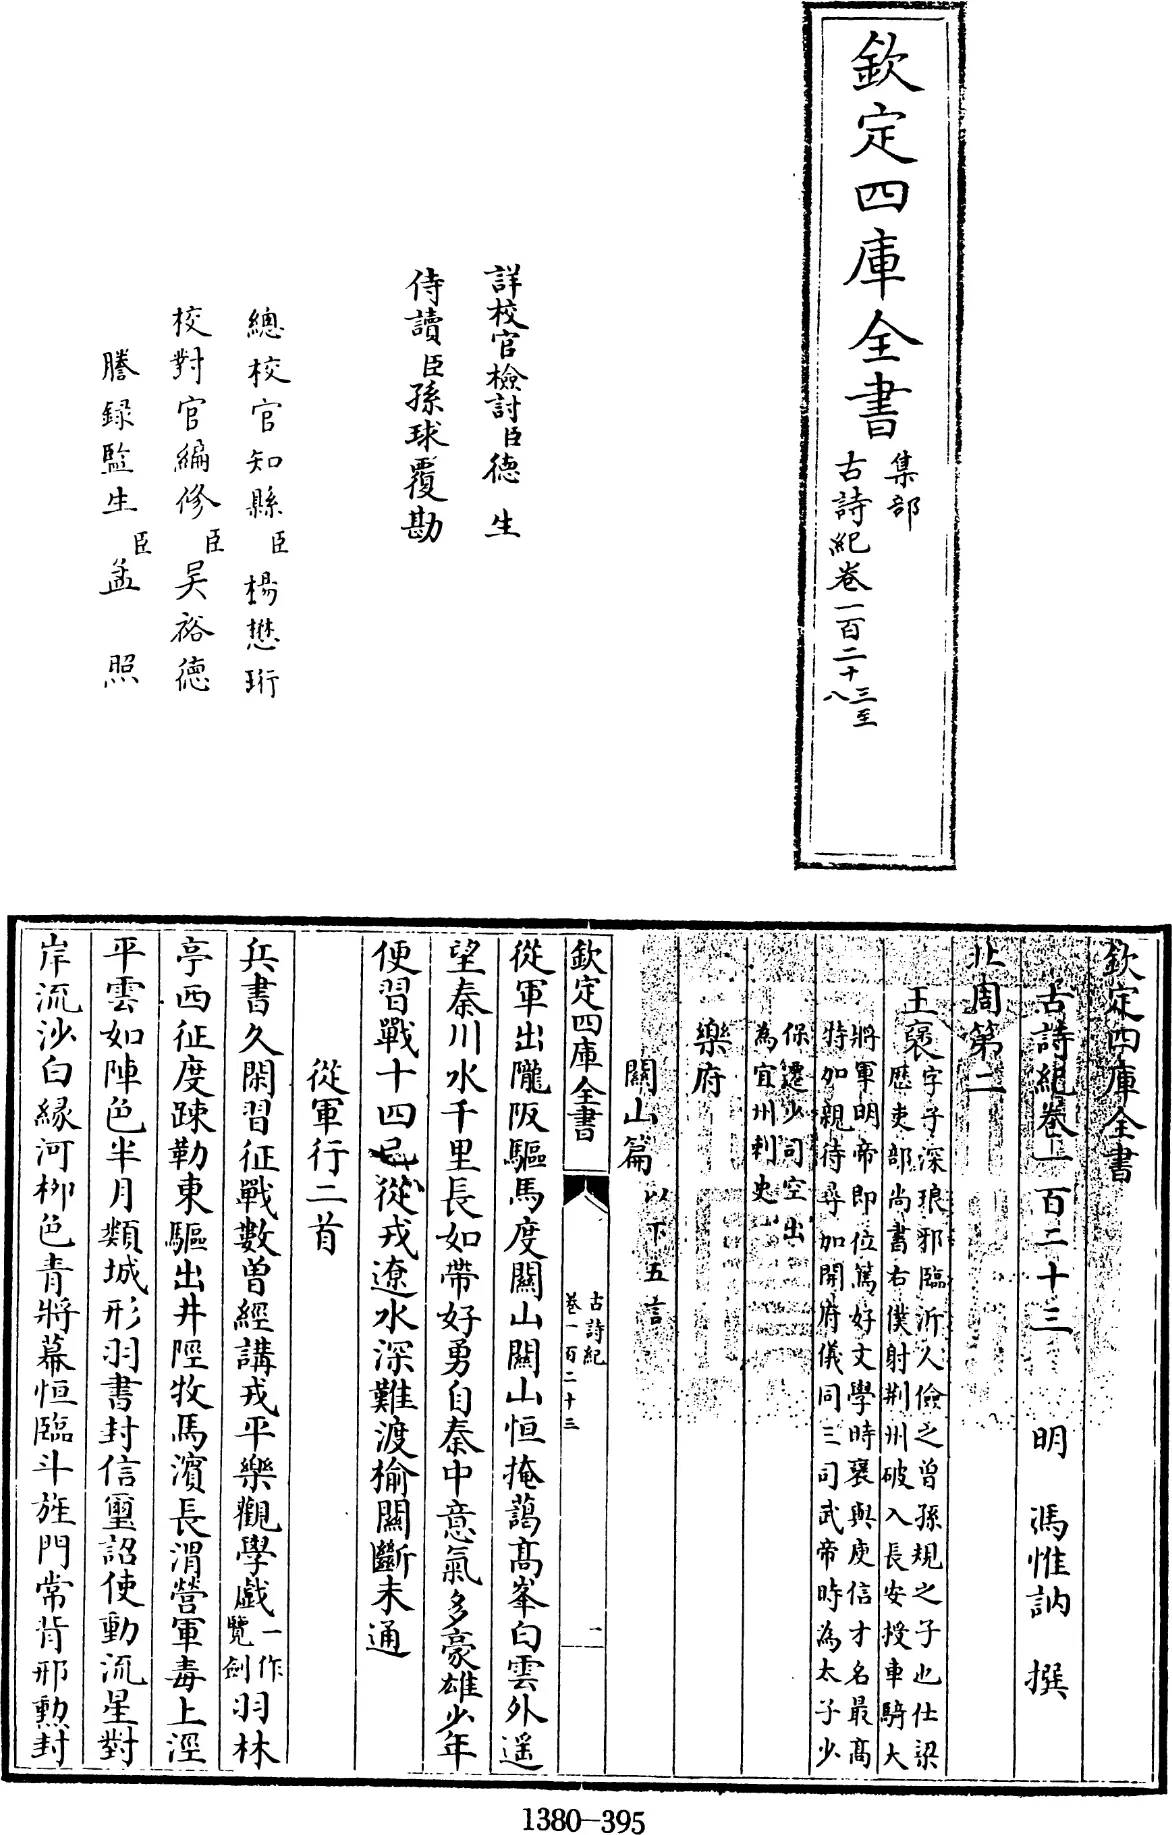 欽定四庫全書
集部
古詩紀卷一百二十三至
八
詳校官檢討臣德生
侍讀臣孫球覆勘
總校官知縣臣楊懋珩
校對官編修臣吴裕德
謄録監生臣孟照
欽定四庫全書
古詩紀卷一百二十三 明 馮惟訥 撰
北周第二
王襃字子深琅邪臨沂人儉之曾孫規之子也仕梁
歴吏部尚書右僕射荆州破入長安授車騎大
將軍明帝即位篤好文學時襃與庾信才名最髙
特加親待尋加開府儀同三司武帝時為太子少
保遷少司空出
為宜州刺史
樂府
關山篇以下五言
從軍出隴阪驅馬度關山關山恒掩藹髙峯白雲外遥
望秦川水千里長如帶好勇自秦中意氣多豪雄少年
便習戰十四已從戎遼水深難渡榆關斷未通
從軍行二首
兵書久閑習征戰數曾經講戎平樂觀學戲一作覽劍羽林
亭西征度踈勒東驅出井陘牧馬濱長渭營軍毒上涇
平雲如陣色半月類城形羽書封信璽詔使動流星對
岸流沙白縁河柳色青將幕恒臨斗旌門常背邢勲封
欽定四庫全書
古詩紀
卷一百二十三
一
1380-395